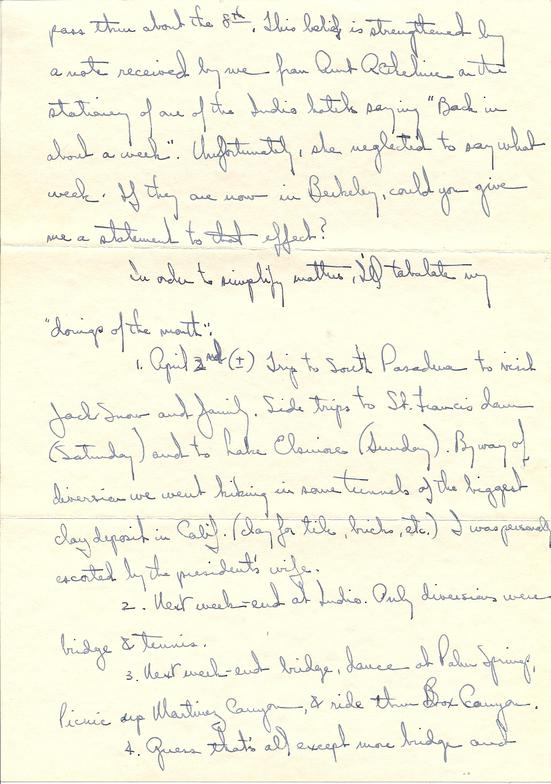 pass thru about the 8th. This belief is strengthened by
a note received by me from Aunt Adeline on the
stationery of one of the Indio hotels saying "Back in
about a week". Unfortunately, she neglected to say what
week. If they are now in Berkeley, could you give
me a statement to that effect?
In order to simplify matters, I'll tabulate my
"doings of the month":
1. April 2nd (±) Trip to South Pasadena to visit
Jack Snow and family. Side trips to St. Francis dam
(Saturday) and to Lake Elsinore (Sunday). By way of
diversion we went hiking in some tunnels of the biggest
clay deposit in Calif. (clay for tile, bricks, etc.) I was personally
escorted by the president's wife.
2. Next week-end at Indio. Only diversions were
bridge & tennis.
3. Next week-end bridge, dance at Palm Springs,
Picnic up Martinez Canyon, & ride thru Box Canyon.
4. Guess that's all except more bridge and